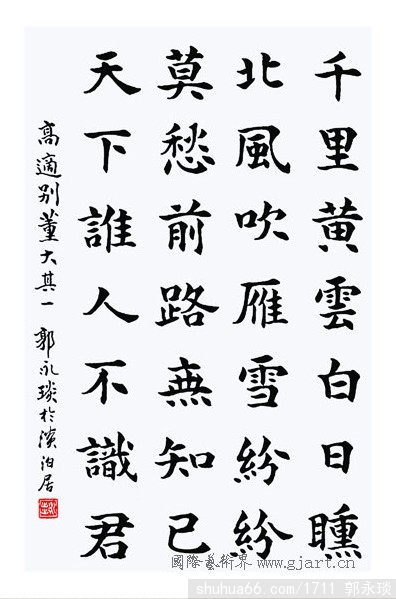 千里黄雲白日曛
北風吹雁雪紛紛
莫愁前路無知己
天下誰人不識君
高適别董大其一 郭永琰於濱泊居
國際藝術界 www.gjart.cn
shuhua66.com/1711 郭永琰